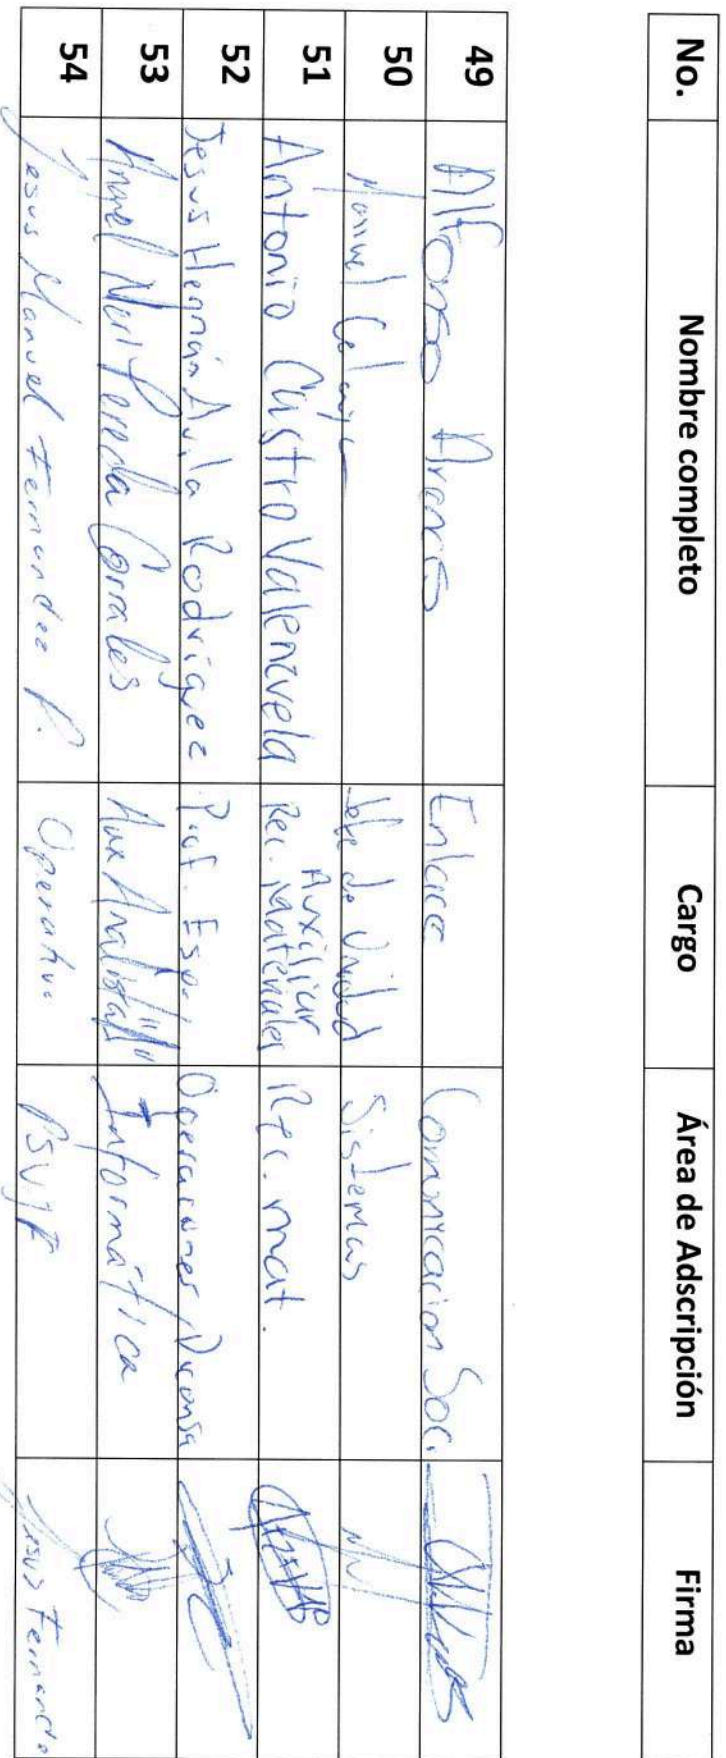 No. Nombre completo Cargo Área de Adscripción Firma
49 Alfonso Enlace Comunicacion Soc.
50 Manuel Jefe de Unidad Sistemas
51 Antonio Castro Valenzuela Auxiliar Rec. Materiales Rec. mat.
52 Jesus Hernán Avila Rodríguez Prof. Esp. Operaciones / Diconsa
53 Corrales Aux Analista Informática
54 Jesus Manuel Fernandez P. Operativo Jesus Fernando